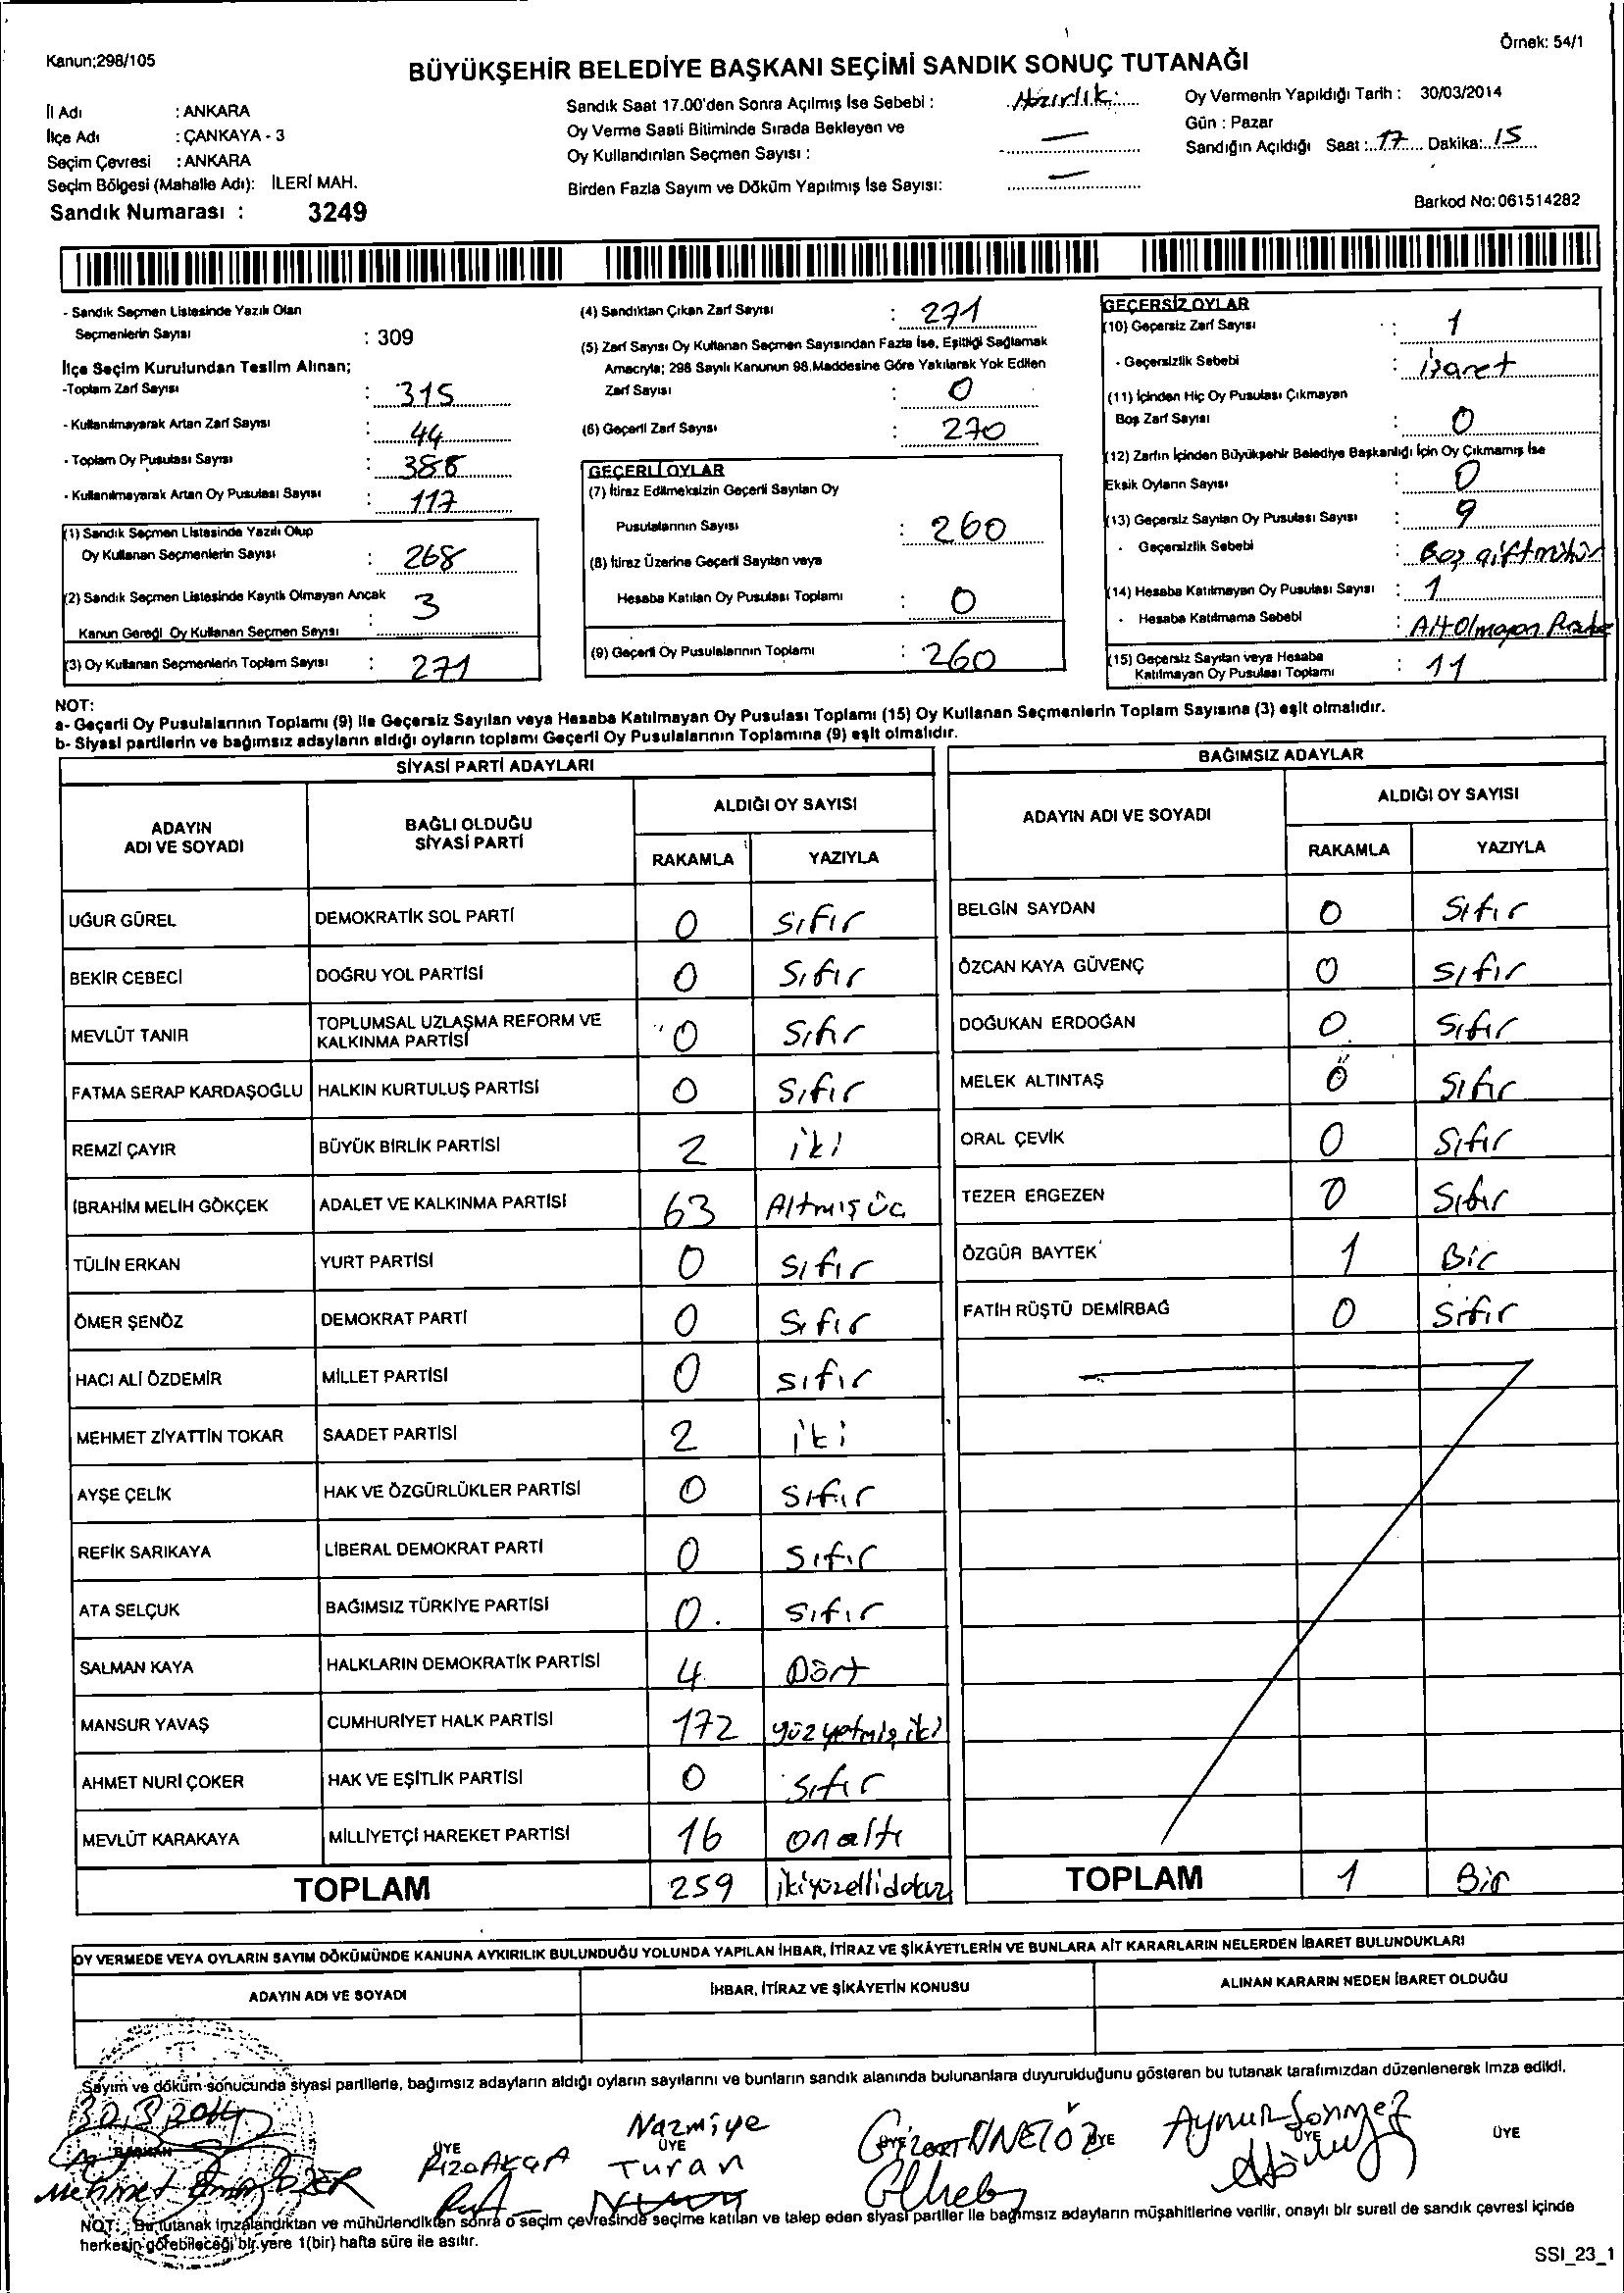 Örnek: 54/1
Kanun;298/105
BÜYÜKŞEHİR BELEDİYE BAŞKANI SEÇİMİ SANDIK SONUÇ TUTANAĞI
İl Adı : ANKARA
İlçe Adı : ÇANKAYA - 3
Seçim Çevresi : ANKARA
Seçim Bölgesi (Mahalle Adı): İLERİ MAH.
Sandık Numarası : 3249
Sandık Saat 17.00'den Sonra Açılmış İse Sebebi : Hazırlık
Oy Verme Saati Bitiminde Sırada Bekleyen ve
Oy Kullandırılan Seçmen Sayısı : —
Birden Fazla Sayım ve Döküm Yapılmış İse Sayısı: —
Oy Vermenin Yapıldığı Tarih : 30/03/2014
Gün : Pazar
Sandığın Açıldığı Saat : 17 Dakika: 15
Barkod No:061514282
- Sandık Seçmen Listesinde Yazılı Olan
Seçmenlerin Sayısı : 309
İlçe Seçim Kurulundan Teslim Alınan;
-Toplam Zarf Sayısı : 315
- Kullanılmayarak Artan Zarf Sayısı : 44
- Toplam Oy Pusulası Sayısı : 388
- Kullanılmayarak Artan Oy Pusulası Sayısı : 117
(1) Sandık Seçmen Listesinde Yazılı Olup
Oy Kullanan Seçmenlerin Sayısı : 268
(2) Sandık Seçmen Listesinde Kayıtlı Olmayan Ancak
Kanun Gereği Oy Kullanan Seçmen Sayısı : 3
(3) Oy Kullanan Seçmenlerin Toplam Sayısı : 271
(4) Sandıktan Çıkan Zarf Sayısı : 271
(5) Zarf Sayısı Oy Kullanan Seçmen Sayısından Fazla İse, Eşitliği Sağlamak
Amacıyla; 298 Sayılı Kanunun 98.Maddesine Göre Yakılarak Yok Edilen
Zarf Sayısı : 0
(6) Geçerli Zarf Sayısı : 270
GEÇERLİ OYLAR
(7) İtiraz Edilmeksizin Geçerli Sayılan Oy
Pusulalarının Sayısı : 260
(8) İtiraz Üzerine Geçerli Sayılan veya
Hesaba Katılan Oy Pusulası Toplamı : 0
(9) Geçerli Oy Pusulalarının Toplamı : 260
GEÇERSİZ OYLAR
(10) Geçersiz Zarf Sayısı : 1
- Geçersizlik Sebebi : işaret
(11) İçinden Hiç Oy Pusulası Çıkmayan
Boş Zarf Sayısı : 0
(12) Zarfın İçinden Büyükşehir Belediye Başkanlığı İçin Oy Çıkmamış İse
Eksik Oyların Sayısı : 0
(13) Geçersiz Sayılan Oy Pusulası Sayısı : 9
- Geçersizlik Sebebi : Boş çift mühür
(14) Hesaba Katılmayan Oy Pusulası Sayısı : 1
- Hesaba Katılmama Sebebi : Ait Olmayan
(15) Geçersiz Sayılan veya Hesaba
Katılmayan Oy Pusulası Toplamı : 11
NOT:
a- Geçerli Oy Pusulalarının Toplamı (9) ile Geçersiz Sayılan veya Hesaba Katılmayan Oy Pusulası Toplamı (15) Oy Kullanan Seçmenlerin Toplam Sayısına (3) eşit olmalıdır.
b- Siyasi partilerin ve bağımsız adayların aldığı oyların toplamı Geçerli Oy Pusulalarının Toplamına (9) eşit olmalıdır.
SİYASİ PARTİ ADAYLARI
ADAYIN ADI VE SOYADI BAĞLI OLDUĞU SİYASİ PARTİ ALDIĞI OY SAYISI
RAKAMLA YAZIYLA
UĞUR GÜREL DEMOKRATİK SOL PARTİ 0 Sıfır
BEKİR CEBECİ DOĞRU YOL PARTİSİ 0 Sıfır
MEVLÜT TANIR TOPLUMSAL UZLAŞMA REFORM VE KALKINMA PARTİSİ 0 Sıfır
FATMA SERAP KARDAŞOĞLU HALKIN KURTULUŞ PARTİSİ 0 Sıfır
REMZİ ÇAYIR BÜYÜK BİRLİK PARTİSİ 2 iki
İBRAHİM MELİH GÖKÇEK ADALET VE KALKINMA PARTİSİ 63 Altmış üç
TÜLİN ERKAN YURT PARTİSİ 0 Sıfır
ÖMER ŞENÖZ DEMOKRAT PARTİ 0 Sıfır
HACI ALİ ÖZDEMİR MİLLET PARTİSİ 0 sıfır
MEHMET ZİYATTİN TOKAR SAADET PARTİSİ 2 iki
AYŞE ÇELİK HAK VE ÖZGÜRLÜKLER PARTİSİ 0 Sıfır
REFİK SARIKAYA LİBERAL DEMOKRAT PARTİ 0 Sıfır
ATA SELÇUK BAĞIMSIZ TÜRKİYE PARTİSİ 0 Sıfır
SALMAN KAYA HALKLARIN DEMOKRATİK PARTİSİ 4 Dört
MANSUR YAVAŞ CUMHURİYET HALK PARTİSİ 172 yüz yetmiş iki
AHMET NURİ ÇOKER HAK VE EŞİTLİK PARTİSİ 0 Sıfır
MEVLÜT KARAKAYA MİLLİYETÇİ HAREKET PARTİSİ 16 onaltı
TOPLAM 259 ikiyüzellidokuz
BAĞIMSIZ ADAYLAR
ADAYIN ADI VE SOYADI ALDIĞI OY SAYISI
RAKAMLA YAZIYLA
BELGİN SAYDAN 0 Sıfır
ÖZCAN KAYA GÜVENÇ 0 Sıfır
DOĞUKAN ERDOĞAN 0 Sıfır
MELEK ALTINTAŞ 0 Sıfır
ORAL ÇEVİK 0 Sıfır
TEZER ERGEZEN 0 Sıfır
ÖZGÜR BAYTEK 1 Bir
FATİH RÜŞTÜ DEMİRBAĞ 0 Sıfır
TOPLAM 1 Bir
OY VERMEDE VEYA OYLARIN SAYIM DÖKÜMÜNDE KANUNA AYKIRILIK BULUNDUĞU YOLUNDA YAPILAN İHBAR, İTİRAZ VE ŞİKÂYETLERİN VE BUNLARA AİT KARARLARIN NELERDEN İBARET BULUNDUKLARI
ADAYIN ADI VE SOYADI İHBAR, İTİRAZ VE ŞİKÂYETİN KONUSU ALINAN KARARIN NEDEN İBARET OLDUĞU
Sayım ve döküm sonucunda siyasi partilerle, bağımsız adayların aldığı oyların sayılarını ve bunların sandık alanında bulunanlara duyurulduğunu gösteren bu tutanak tarafımızdan düzenlenerek imza edildi.
30.3.2014
BAŞKAN ÜYE ÜYE ÜYE ÜYE ÜYE
Mehmet
Rıza AKÇA
Nazmiye Turan
Aynur Sönmez
NOT: Bu tutanak imzalandıktan ve mühürlendikten sonra o seçim çevresinde seçime katılan ve talep eden siyasi partiler ile bağımsız adayların müşahitlerine verilir, onaylı bir sureti de sandık çevresi içinde
herkesin görebileceği bir yere 1(bir) hafta süre ile asılır.
SSI_23_1